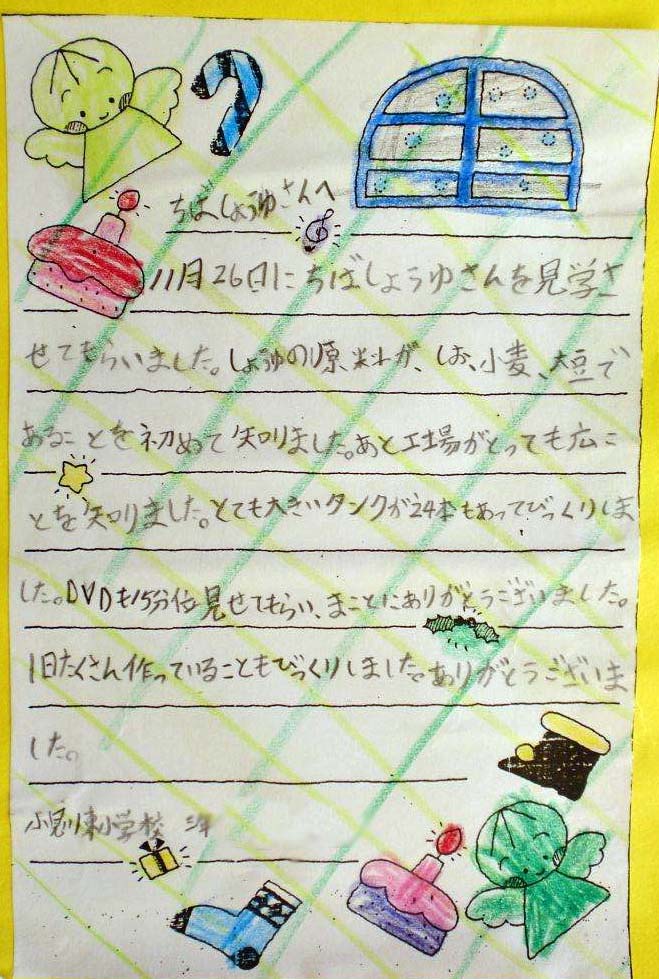 ちばしょうゆさんへ
11月26日にちばしょうゆさんを見学さ
せてもらいました。しょうゆの原料が、しお、小麦、大豆で
あることを初めて知りました。あと工場がとっても広こ
とを知りました。とても大きいタンクが24本もあってびっくりしま
した。DVDも15分位見せてもらい、まことにありがとうございました。
1日たくさん作っていることもびっくりしました。ありがとうございま
した。
東小学校 三年